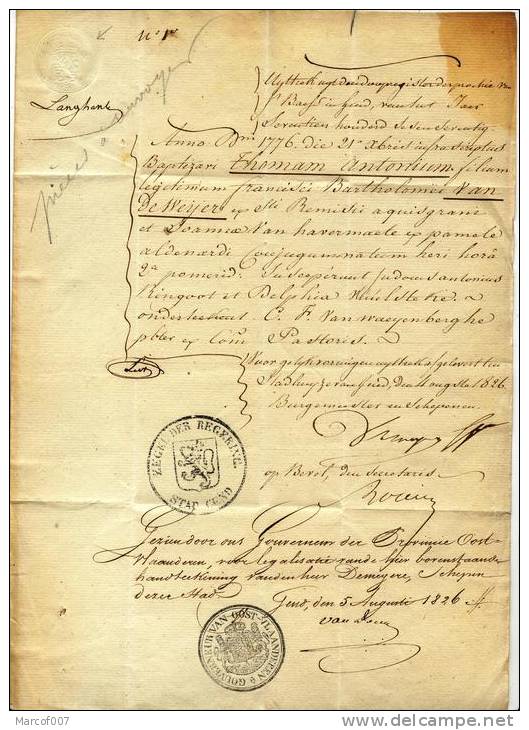 N° 1
pièces à renvoyer
Langhend
Uyttreksel uyt den doopregister der prochie van
St Baefs in Gend, van het Jaer
Seventien honderd sesen seventig
Anno Dni 1776. die 21a Xbris infrascriptus
Baptizavi Thomam Antonium filium
legitimum Francisci Bartholomei Van
De Weyer ex Sti Remisii aquisgrane
et Joannæ Van havermaete ex pamele
aldenardi Conjugum natum heri horâ
2a pomerid. Susceperunt Judocus antonius
Ringoot et Delphica
onderteekent C. F. Van waeyenberghe
pbter ex Com Pastoris.
Voor gelykvormig uyttreksel afgelevert ten
Stadhuyze van Gend, den 4 augsti 1826.
Burgemeester en Schepenen
op Bevel, den Secretaris
ZEGEL DER REGERING.
STAD GEND
Gezien door ons Gouverneur der Provincie Oost-
Vlaanderen, voor legalisatie van de hier bovenstaande
handteekening van den heer Demeyere, Schepen
dezer Stad.
Gend, den 5 Augusti 1826
GOUVERNEUR VAN OOST-VLAANDEREN
Marcof007
www.delcampe.net